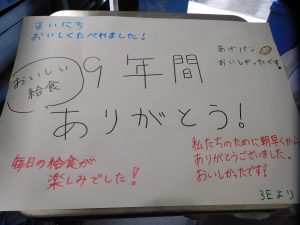 まいにち
おいしくたべれました!
あげパン
おいしかったです!
おいしい
給食
9年間
ありがとう!
毎日の給食が
楽しみでした!
私たちのために朝早くから
ありがとうございました。
おいしかったです!
3Eより